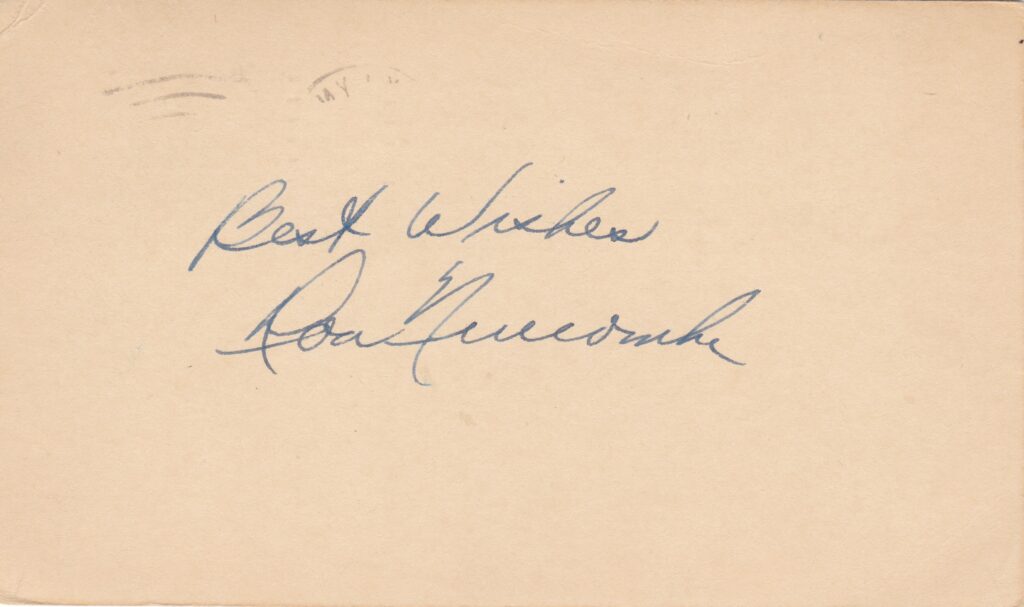 Best Wishes
Don Newcombe